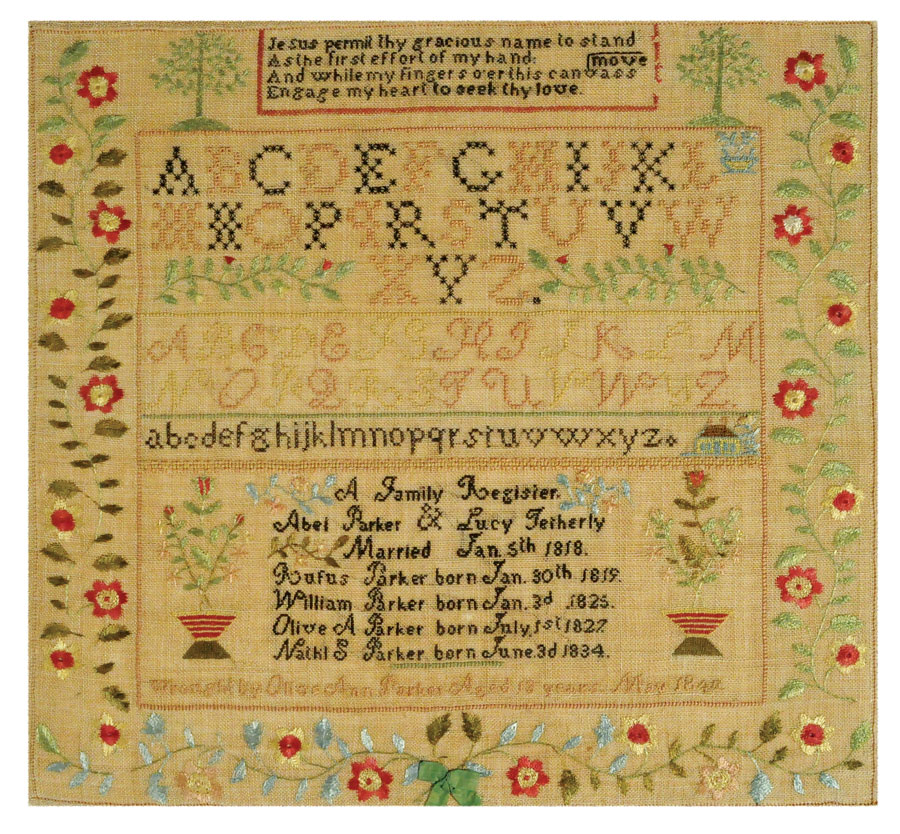 Jesus permit thy gracious name to stand
As the first effort of my hand:
move
And while my fingers o'er this canvass
Engage my heart to seek thy love.
A B C D E F G H I J K L
M N O P Q R S T U V W
X Y Z.
A B C D E F G H I J K L M
N O P Q R S T U V W Y Z
abcdefghijklmnopqrstuvwxyz.
A Family Register.
Abel Parker & Lucy Tetherly
Married Jan. 5th 1818.
Rufus Parker born Jan. 30th 1819.
William Parker born Jan. 3d 1825.
Olive A Parker born July, 1st 1827
Nathl S Parker born June. 3d 1834.
Wrought by Olive Ann Parker Aged 13 years. May 1840